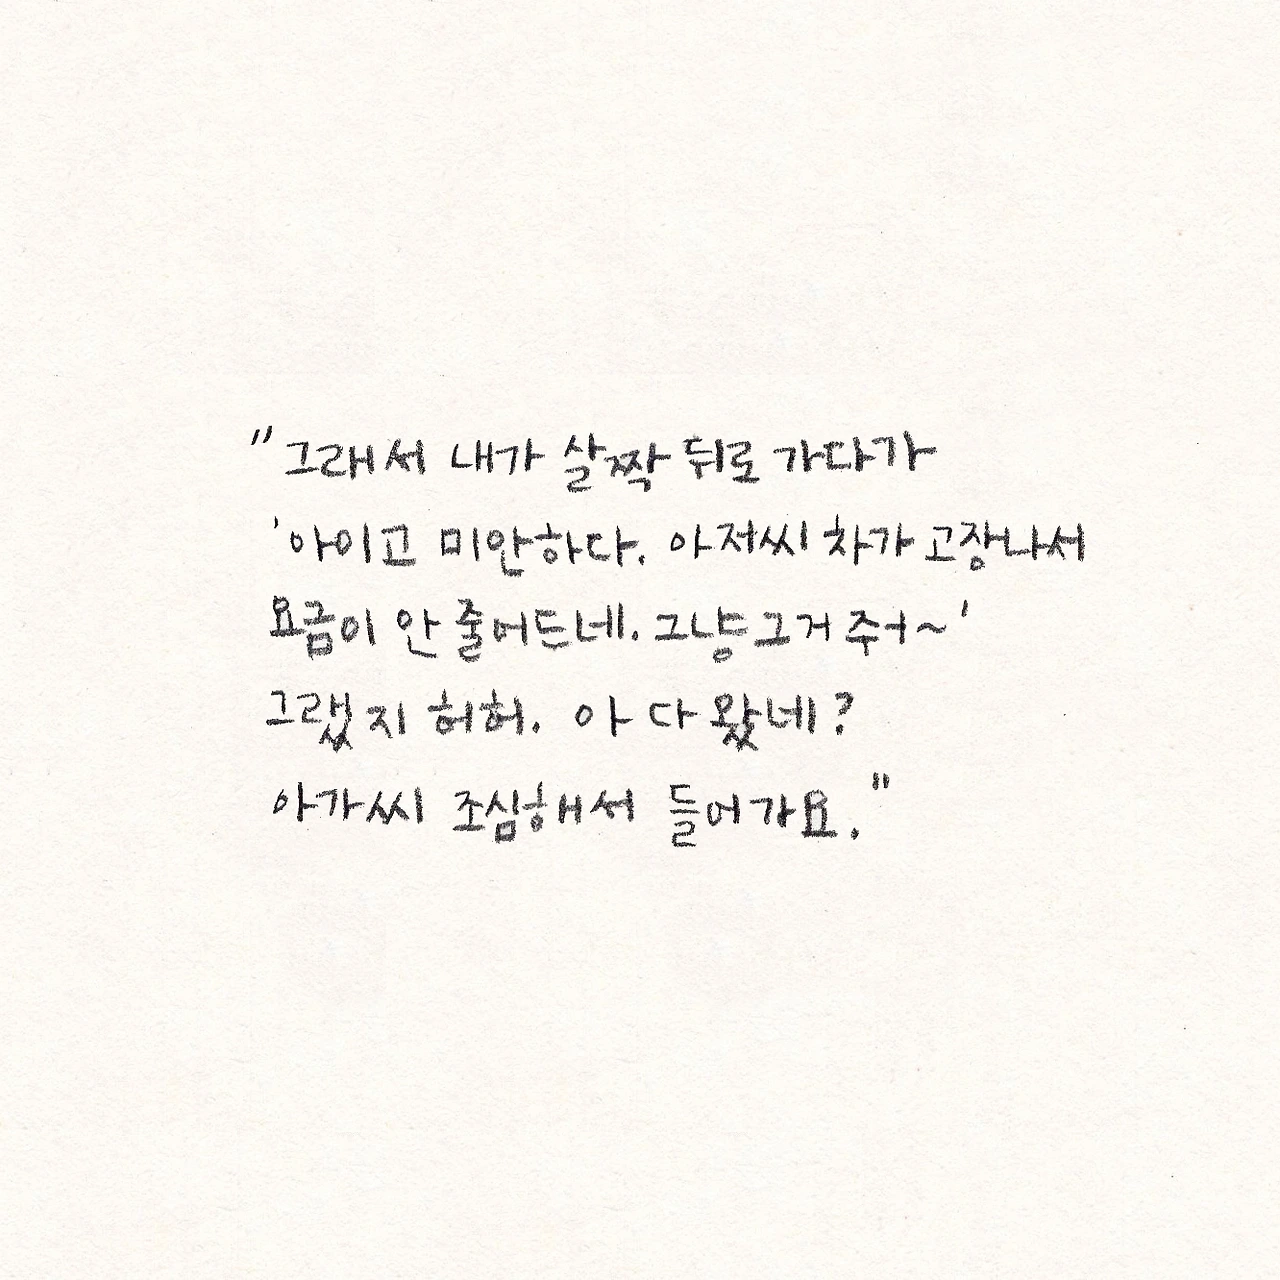 "그래서 내가 살짝 뒤로 가다가
'아이고 미안하다. 아저씨 차가 고장나서
요금이 안 줄어드네. 그냥 그거 주어~'
그랬지 허허. 아 다 왔네?
아가씨 조심해서 들어가요."